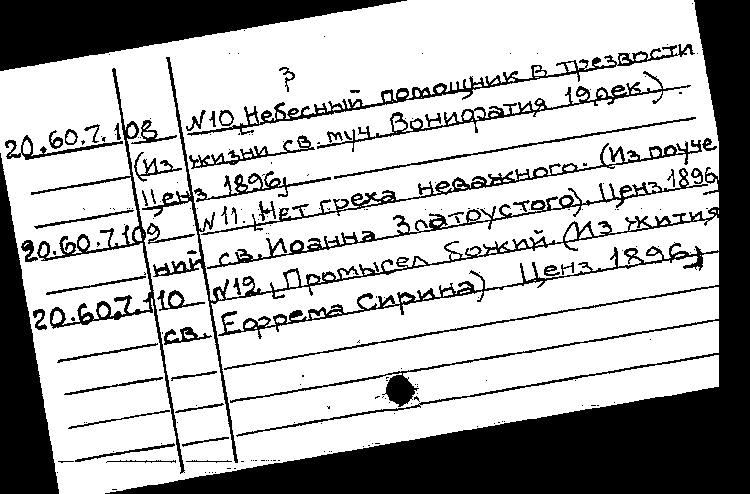 3
20.60.7.108 №10. Небесный помощник в трезвости
(Из жизни св. муч. Вонифатия 19 дек.)
Ценз 1896
20.60.7.109 №11. Нет греха неважного. (Из поуче
ний св. Иоанна Златоустого). Ценз. 1896
20.60.7.110 №12. Промысел Божий. (Из жития
св. Ефрема Сирина). Ценз. 1896